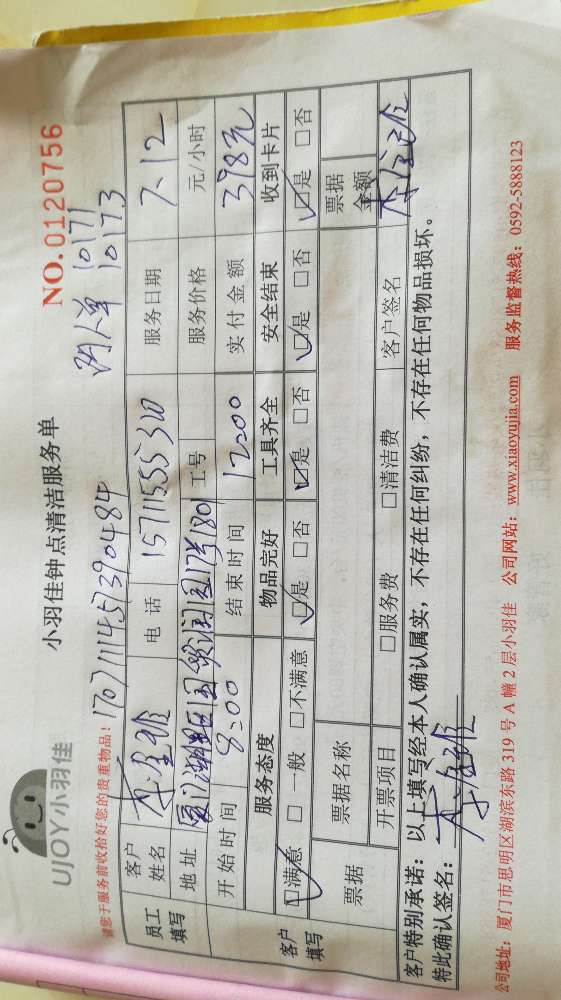 UJOY小羽佳
小羽佳钟点清洁服务单
NO.0120756
请您于服务前收拾好您的贵重物品!
10171
10173
员工填写
客户姓名
电话 15711555310
服务日期 7.12
地址
工号
服务价格 元/小时
开始时间 8:00
结束时间 12:00
实付金额 398元
客户填写
服务态度 物品完好 工具齐全 安全结束 收到卡片
☑满意 □一般 □不满意 ☑是 □否 ☑是 □否 ☑是 □否 ☑是 □否
票据 票据名称 票据金额
开票项目 □服务费 □清洁费 客户签名
客户特别承诺:以上填写经本人确认属实,不存在任何纠纷,不存在任何物品损坏。
特此确认签名:
公司地址:厦门市思明区湖滨东路 319 号 A 幢 2 层小羽佳 公司网站:www.xiaoyujia.com 服务监督热线:0592-5888123